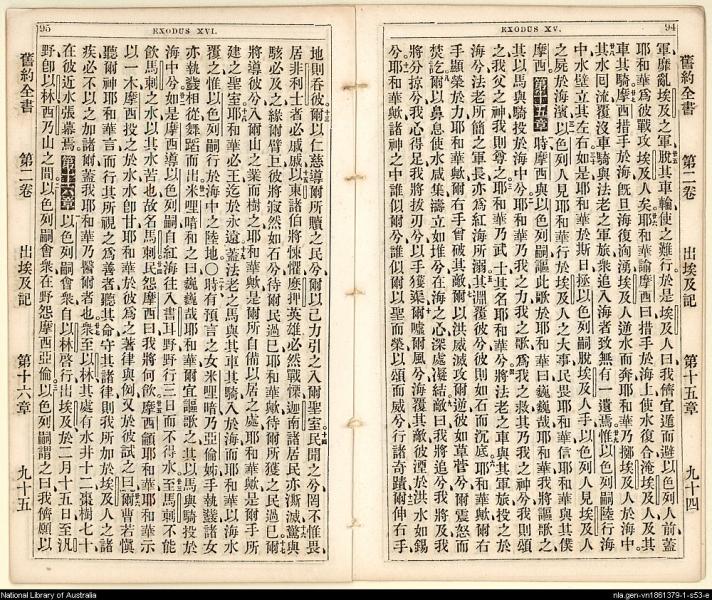 EXODUS XV. 94
舊約全書 第二卷 出埃及記 第十五章 九十四
軍靡亂埃及之軍脫其車輪使之難行於是埃及人曰我儕宜遁而避以色列人前蓋
耶和華為彼戰攻埃及人矣耶和華諭摩西曰措手於海上使水復合淹埃及人及其
車其騎摩西措手於海旣旦海復洶湧埃及人逆水而奔耶和華乃擲埃及人於海中
其水囘流覆沒車騎與法老之軍旅衆追入海者致無有一遺焉惟以色列嗣陸行海
中水壁立其左右如是耶和華於斯日拯以色列嗣脫埃及人手以色列人見埃及人
之屍於海濱以色列人見耶和華行於埃及人之大事民畏耶和華信耶和華與其僕
摩西 第十五章 時摩西與以色列嗣謳此歌於耶和華曰巍巍哉耶和華我將謳歌之
其以馬與騎投於海中兮耶和華乃我之力我之歌爲我之救其乃我之神兮我則頌
之我父之神我則尊之耶和華乃武士其名耶和華兮將法老之車與其軍旅投之於
海兮法老所簡之軍長亦爲紅海所溺其淵覆彼兮彼則如石而沉底耶和華歟爾右
手顯榮於力耶和華歟爾右手曾破其敵爾以洪威滅攻爾逆彼如草菅兮爾震怒而
焚訖爾以鼻息使水咸集濤立如堆兮在海之心深處凝結敵曰我將追我將及我
將分掠兮我心得足我將拔刃兮以手獲渠爾噓爾風兮海覆其敵彼湮於洪水如錫
兮耶和華歟諸神之中誰似爾兮誰似爾以聖而榮以頌而威兮行諸奇蹟爾伸右手
95 EXODUS XVI.
地則吞彼爾以仁慈導爾所贖之民兮爾以己力引之入爾聖室民聞之兮罔不惟畏
居非利士者必戚戚以東諸伯將悚懼摩押英雄必然戰慄迦南諸居民亦澌滅驚與
駭必及之緣爾臂巨彼將寂然如石兮待爾民過已耶和華歟待爾所獲之民過已爾
將導彼兮入爾山之業而樹之耶和華歟是爾所自備以居之處耶和華歟是爾手所
建之聖室耶和華必王迄於永遠蓋法老之馬與其車其騎入於海而耶和華以海水
覆之惟以色列嗣行於海中之陸地〇時有預言之女米哩暗乃亞倫姊手執鼗諸女
亦執鼗相從舞蹈而出米哩暗和之曰巍巍哉耶和華爾宜謳歌之其以馬與騎投於
海中兮如是摩西導以色列嗣自紅海往入書耳野野行三日而不得水至馬剌不能
飲馬剌之水以其水苦也故名馬剌民怨摩西曰我將何飲摩西籲耶和華耶和華示
以一木摩西投之於水水卽甘耶和華於彼爲之著律與例又於彼試之曰爾曹若愼
聽爾神耶和華言而行其所視之爲善者聽其命守其諸律則我所加於埃及人之諸
疾必不以之加諸爾蓋我耶和華乃醫爾者也衆至以林其處有水井十二棗樹七十
在彼近水張幕焉 第十六章 以色列嗣會衆自以林啓行出埃及於二月十五日至汎
野卽以林西乃山之間以色列嗣會衆在野怨摩西亞倫以色列嗣謂之曰我儕願以
舊約全書 第二卷 出埃及記 第十六章 九十五
National Library of Australia
nla.gen-vn1861379-1-s53-e